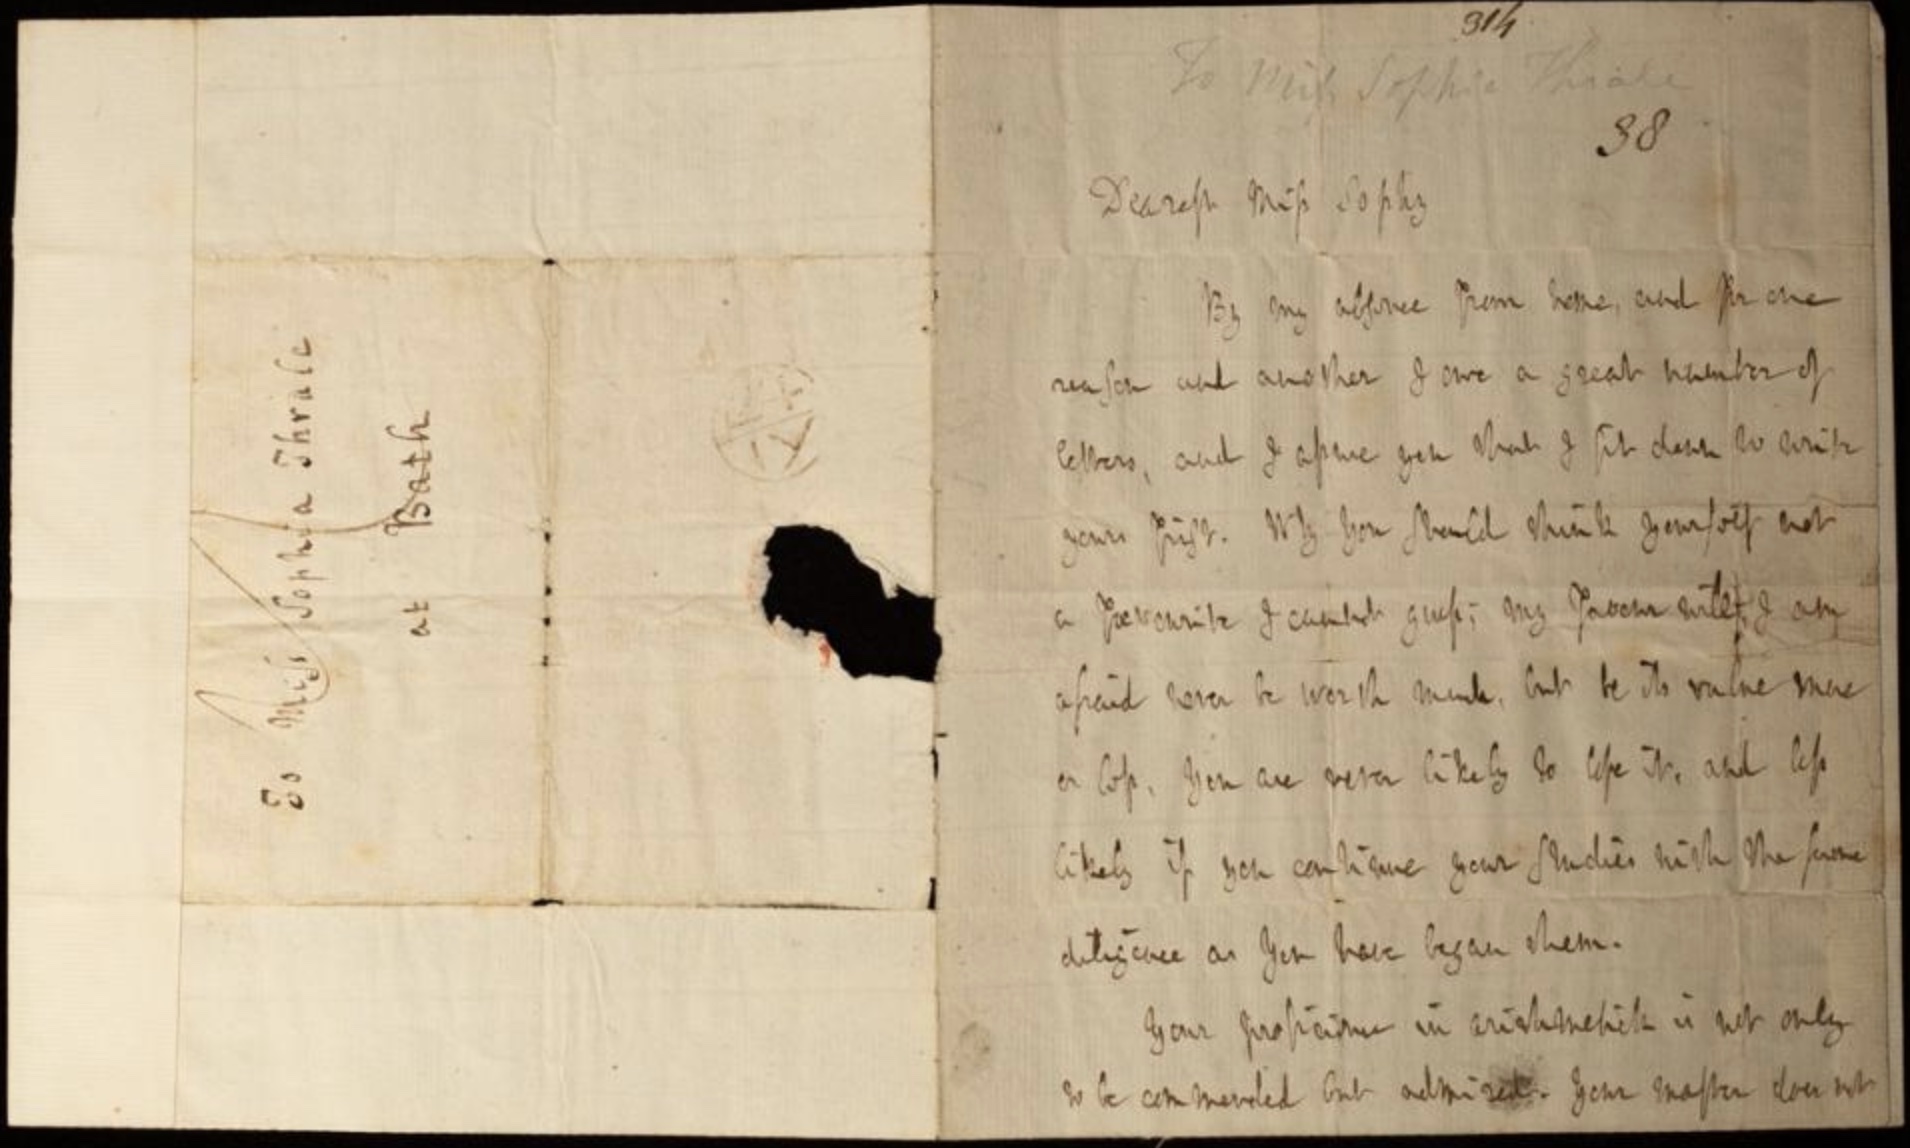 To Miss Sophia Thrale
at Bath
314
To Miss Sophia Thrale
38
Dearest Miss Sophy
By my absence from home, and for one
reason and another I owe a great number of
letters, and I assure you that I sit down to write
yours first. Why you should think yourself not
a favourite I cannot guess; my favour will, I am
afraid never be worth much, but be its value more
or less, you are never likely to lose it, and less
likely if you continue your studies with the same
diligence as you have began them.
Your proficience in arithmetick is not only
to be commended but admired. Your master does not